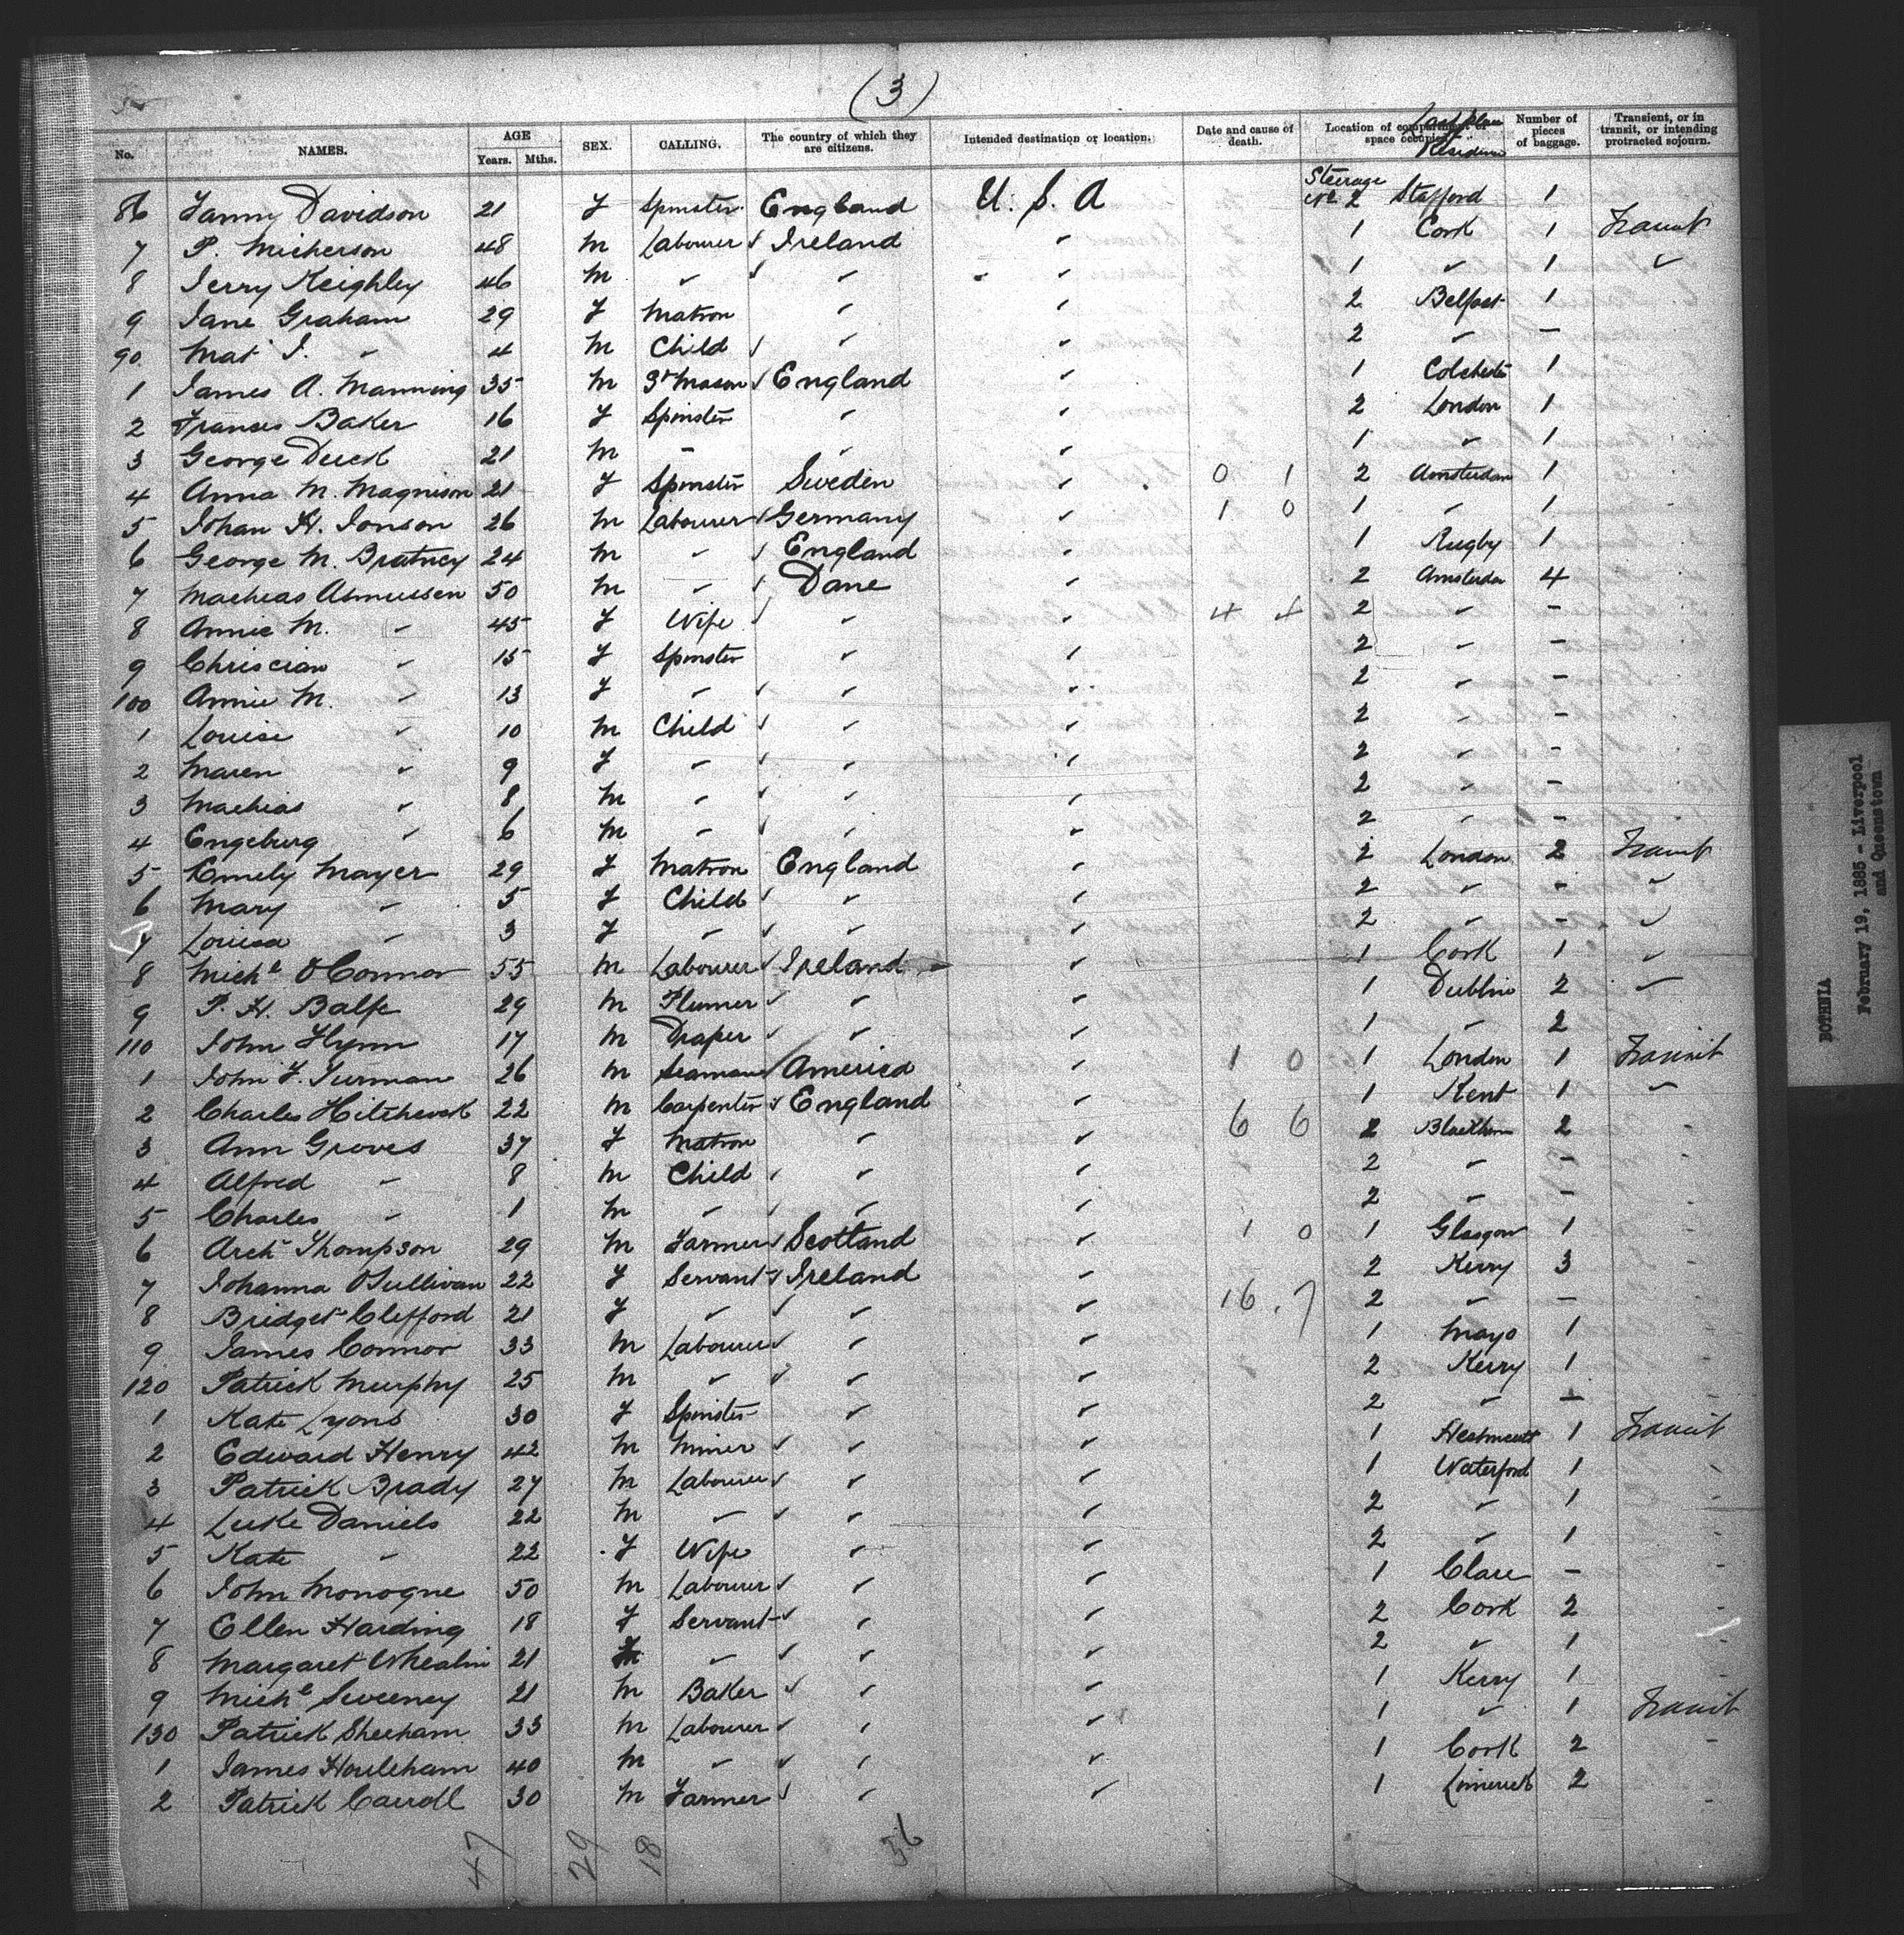 (3)
No. NAMES. AGE Years. Mths. SEX. CALLING. The country of which they are citizens. Intended destination or location. Date and cause of death. Location of compartment or space occupied. Last place Residence Number of pieces of baggage. Transient, or in transit, or intending protracted sojourn.
86 Fanny Davidson 21 F Spinster England U. S. A Steerage No 2 Stafford 1
7 P. Micherson 48 M Labourer Ireland " 1 Cork 1 Transit
8 Jerry Keighley 46 M " " " 1 " 1 "
9 Jane Graham 29 F Matron " " 2 Belfast 1
90 Mat J. " 4 M Child " " 2 " -
1 James A. Manning 35 M St Mason England " 1 Colchester 1
2 Frances Baker 16 F Spinster " " 2 London 1
3 George Duck 21 M - " " 1 " 1
4 Anna M. Magnison 21 F Spinster Sweden " 0 1 2 Amsterdam 1
5 Johan H. Jonson 26 M Labourer Germany " 1 0 1 " 1
6 George M. Bratney 24 M " England " 1 Rugby 1
7 Machias Asmussen 50 M " Dane " 2 Amsterdam 4
8 Annie M. " 45 F Wife " " 4 4 2 " -
9 Chriscian " 15 F Spinster " " 2 " -
100 Annie M. " 13 F " " " 2 " -
1 Louise " 10 M Child " " 2 " -
2 Maren " 9 F " " " 2 " -
3 Machias " 8 M " " " 2 " -
4 Engeburg " 6 M " " " 2 " -
5 Emely Mayer 29 F Matron England " 2 London 2 Transit
6 Mary " 5 F Child " " 2 " - "
7 Louisa " 3 F " " " 2 " - "
8 Michl O'Connor 55 M Labourer Ireland " 1 Cork 1 "
9 P. H. Balfe 29 M Plumer " " 1 Dublin 2 "
110 John Flynn 17 M Draper " " 1 " 2
1 John F. Turman 26 M Seaman America " 1 0 1 London 1 Transit
2 Charles Hitchcock 22 M Carpenter England " 1 Kent 1 "
3 Ann Groves 37 F Matron " " 6 6 2 2 -
4 Alfred " 8 M Child " " 2 " -
5 Charles " 1 M " " " 2 " -
6 Arch Thompson 29 M Farmer Scotland " 1 0 1 Glasgow 1 -
7 Johanna O'Sullivan 22 F Servant Ireland " 2 Kerry 3 -
8 Bridget Clefford 21 F " " " 16 . 7 2 " - -
9 James Connor 33 M Labourer " " 1 Mayo 1 -
120 Patrick Murphy 25 M " " " 2 Kerry 1 -
1 Kate Lyons 30 F Spinster " " 2 " - -
2 Edward Henry 42 M Miner " " 1 1 Transit
3 Patrick Brady 27 M Labourer " " 1 Waterford 1 "
4 Luke Daniels 22 M " " " 2 " 1 -
5 Kate " 22 F Wife " " 2 " 1 -
6 John Monogne 50 M Labourer " " 1 Clare - -
7 Ellen Harding 18 F Servant " " 2 Cork 2 -
8 Margaret Whealin 21 F " " " 2 " 1 -
9 Michl Sweeney 21 M Baker " " 1 Kerry 1 -
130 Patrick Sheeham 33 M Labourer " " 1 " 1 Transit
1 James Houleham 40 M " " " 1 Cork 2 -
2 Patrick Carroll 30 M Farmer " " 1 Limerick 2 -
47 29 18 36
BOTHNIA
February 19, 1885 - Liverpool
and Queenstown